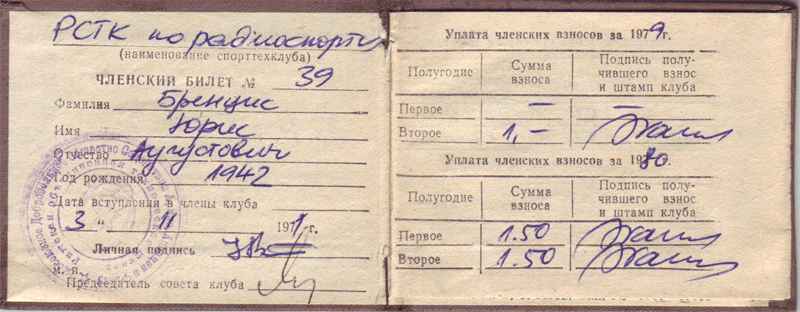 РСТК по радиоспорту
(наименование спорттехклуба)
ЧЛЕНСКИЙ БИЛЕТ № 39
Фамилия Бренцис
Имя Юрис
Отчество Аугустович
Год рождения 1942
Дата вступления в члены клуба
3 " 11 1971г.
Личная подпись
М. п.
Председатель совета клуба
Уплата членских взносов за 1979г.
Полугодие Сумма взноса Подпись полу-
чившего взнос
и штамп клуба
Первое — —
Второе 1,-
Уплата членских взносов за 1980.
Полугодие Сумма взноса Подпись полу-
чившего взнос
и штамп клуба
Первое 1.50
Второе 1.50